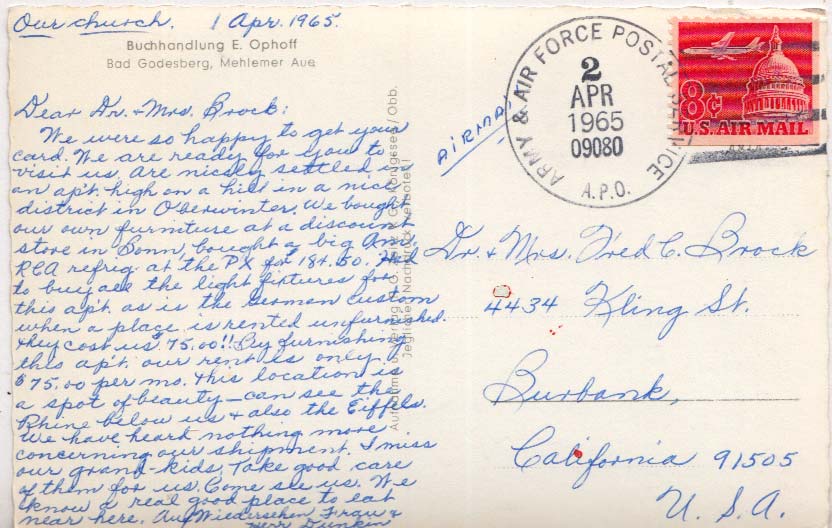 Our church. 1 Apr. 1965.
Buchhandlung E. Ophoff
Bad Godesberg, Mehlemer Aue
Dear Dr. & Mrs. Brock:
We were so happy to get your
card. We are ready for you to
visit us. Are nicely settled in
an apt. high on a hill in a nice
district in Oberwinter. We bought
our own furniture at a discount
store in Bonn, bought a big Am.
RCA refrig. at the PX for 184.50. Had
to buy all the light fixtures for
this apt. as is the German custom
when a place is rented unfurnished.
They cost us 75.00!! By furnishing
this apt. our rent is only
$75.00 per mo. This location is
a spot of beauty — can see the
Rhine below us & also the Eiffels.
We have heard nothing more
concerning our shipment. I miss
our grand-kids. Take good care
of them for us. Come see us. We
know a real good place to eat
near here. Auf Wiedersehen, Frau &
Herr Dunkin
AIRMAIL
ARMY & AIR FORCE POSTAL SERVICE
2
APR
1965
09080
A.P.O.
8¢
U.S. AIR MAIL
Dr. & Mrs. Fred C. Brock
4434 Kling St.
Burbank,
California 91505
U. S. A.